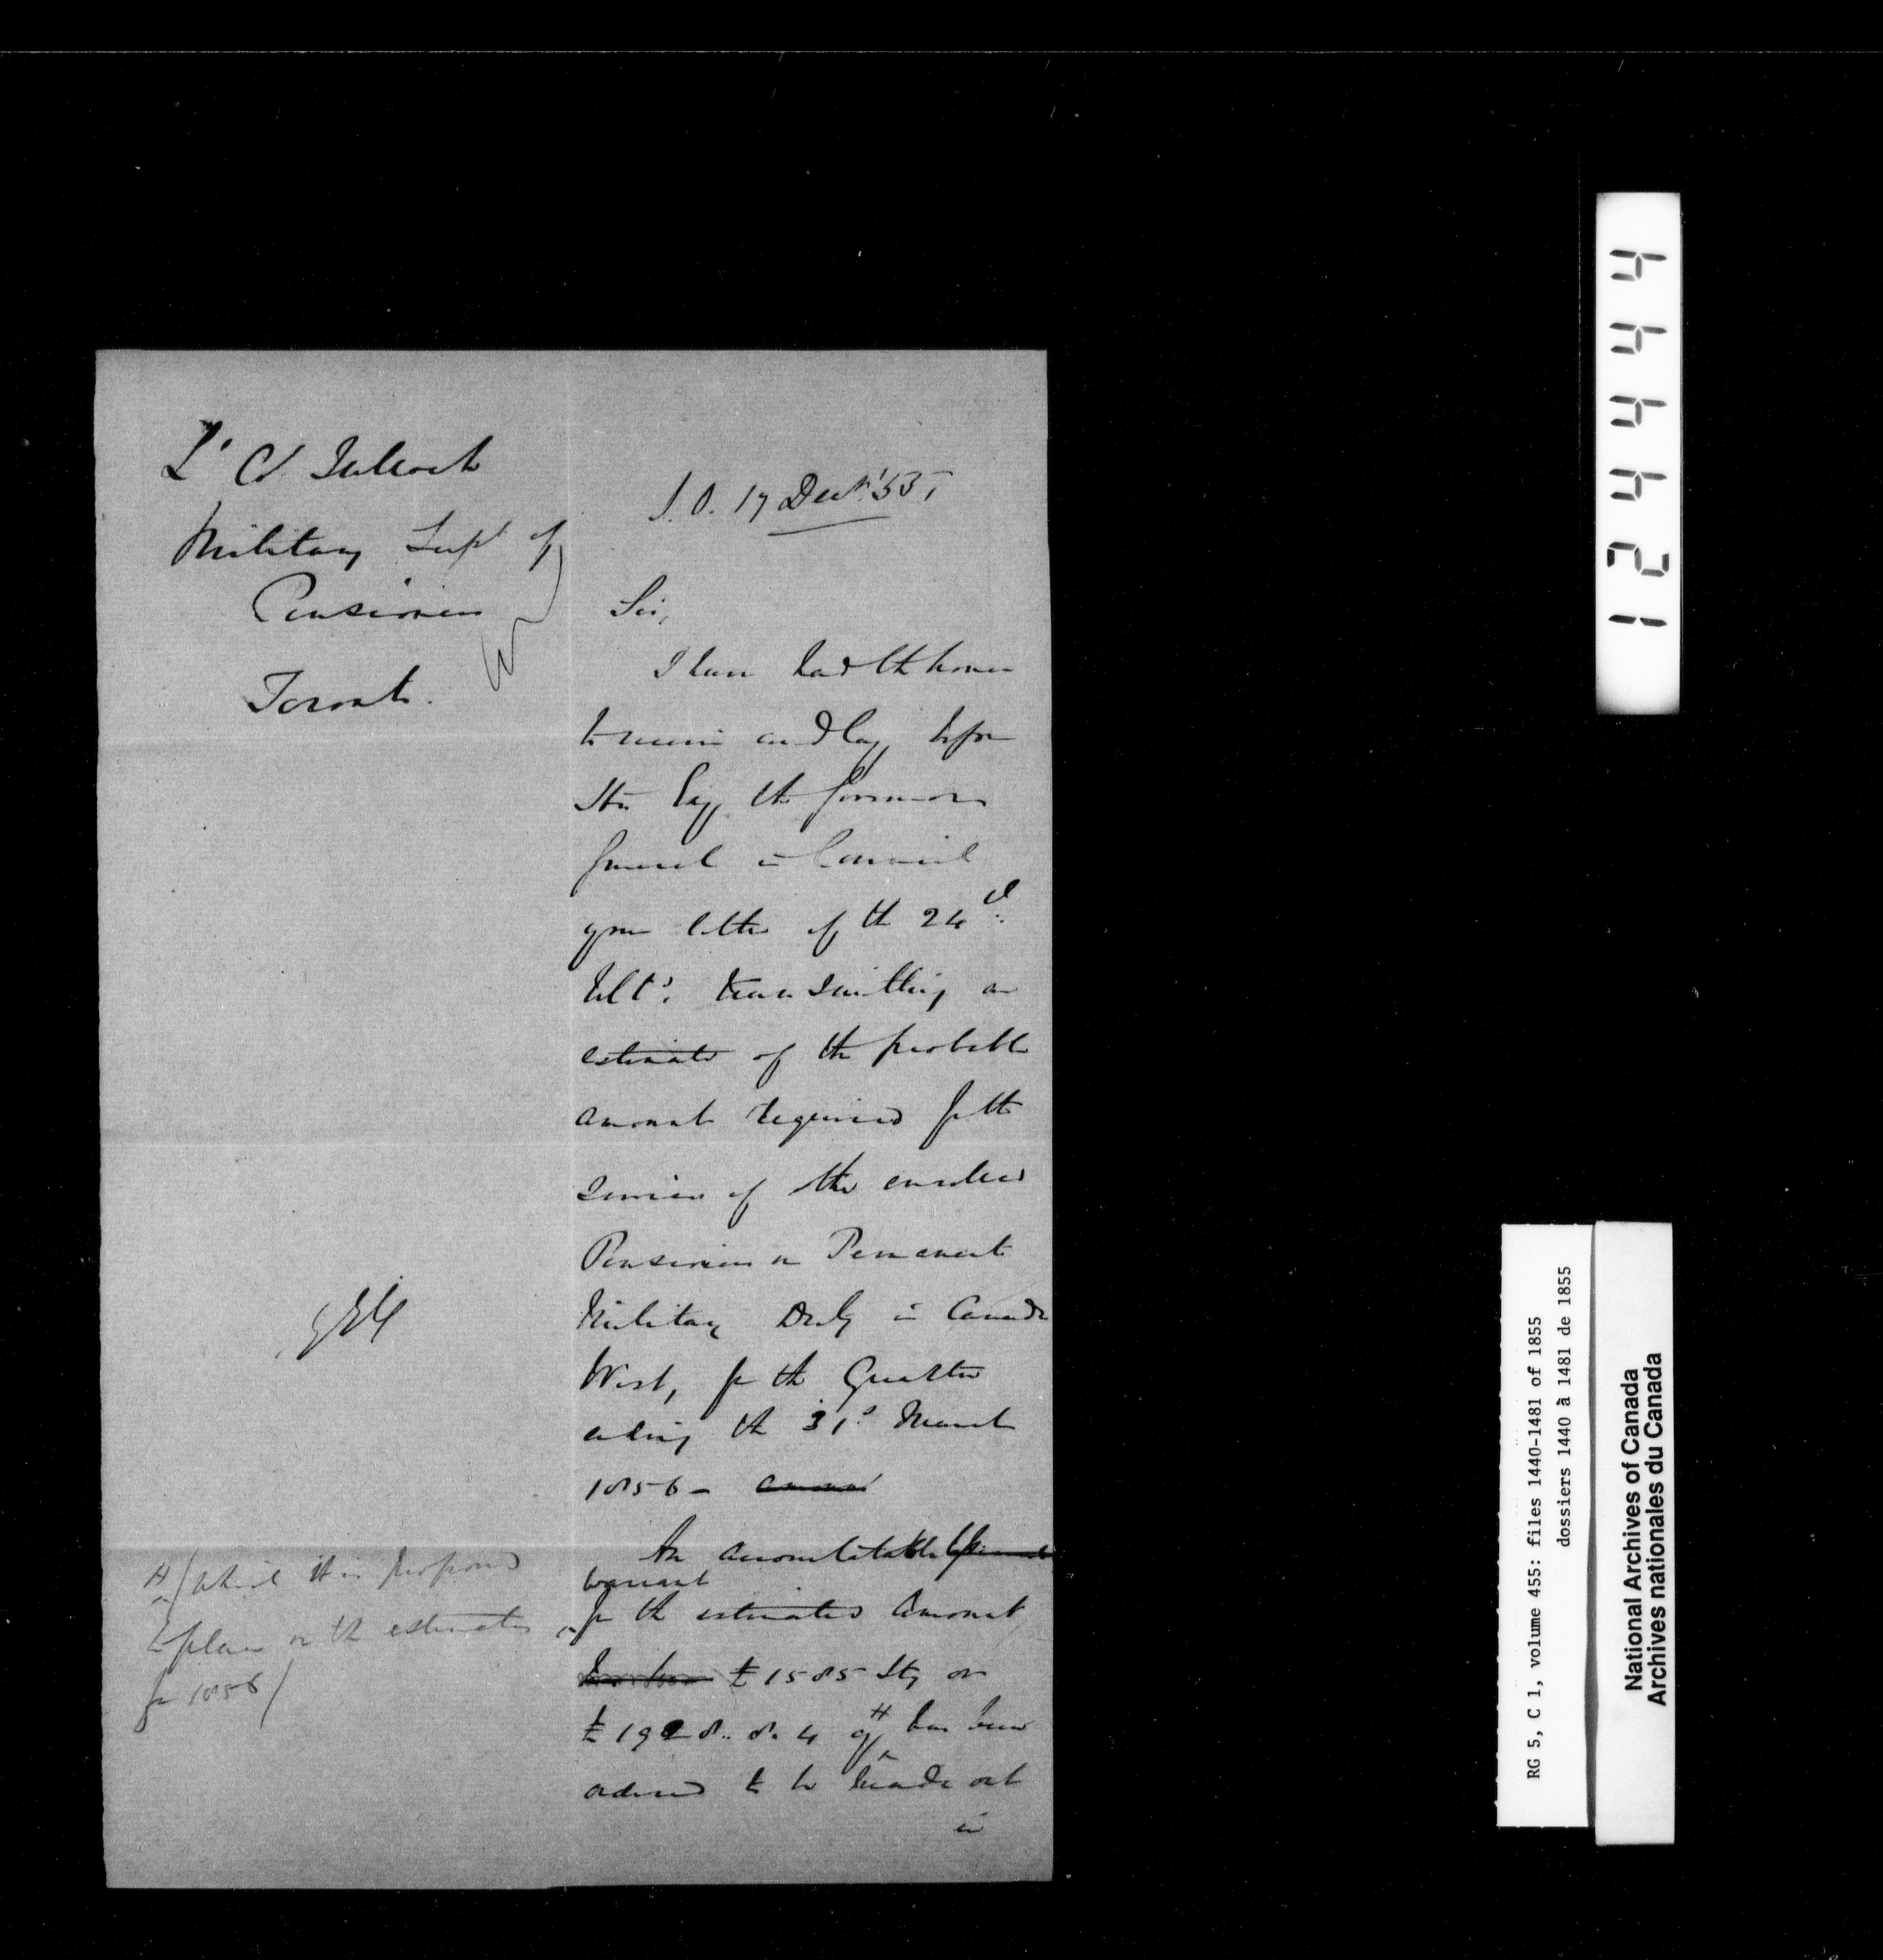 Lt Col Tulloch
Military Supt of
Pensioners
Toronto.
S.O. 17 Decr. '55,
Sir,
I have had the honor
to receive and lay before
His Excy the Governor
General in Council
your letter of the 24th
Ulto. transmitting an
estimate of the probable
amount required for the
services of the enrolled
Pensioners on Permanent
Military Duty in Canada
West, for the Quarter
ending the 31st March
1856 -
An accountable
warrant
for the estimated amount
£1585 Stg or
£1928.. 8. 4 Cy # has been
ordered to be made out
in
#/which it is proposed
to place on the estimates
for 1856/
124444
RG 5, C 1, volume 455: files 1440-1481 of 1855
dossiers 1440 à 1481 de 1855
National Archives of Canada
Archives nationales du Canada